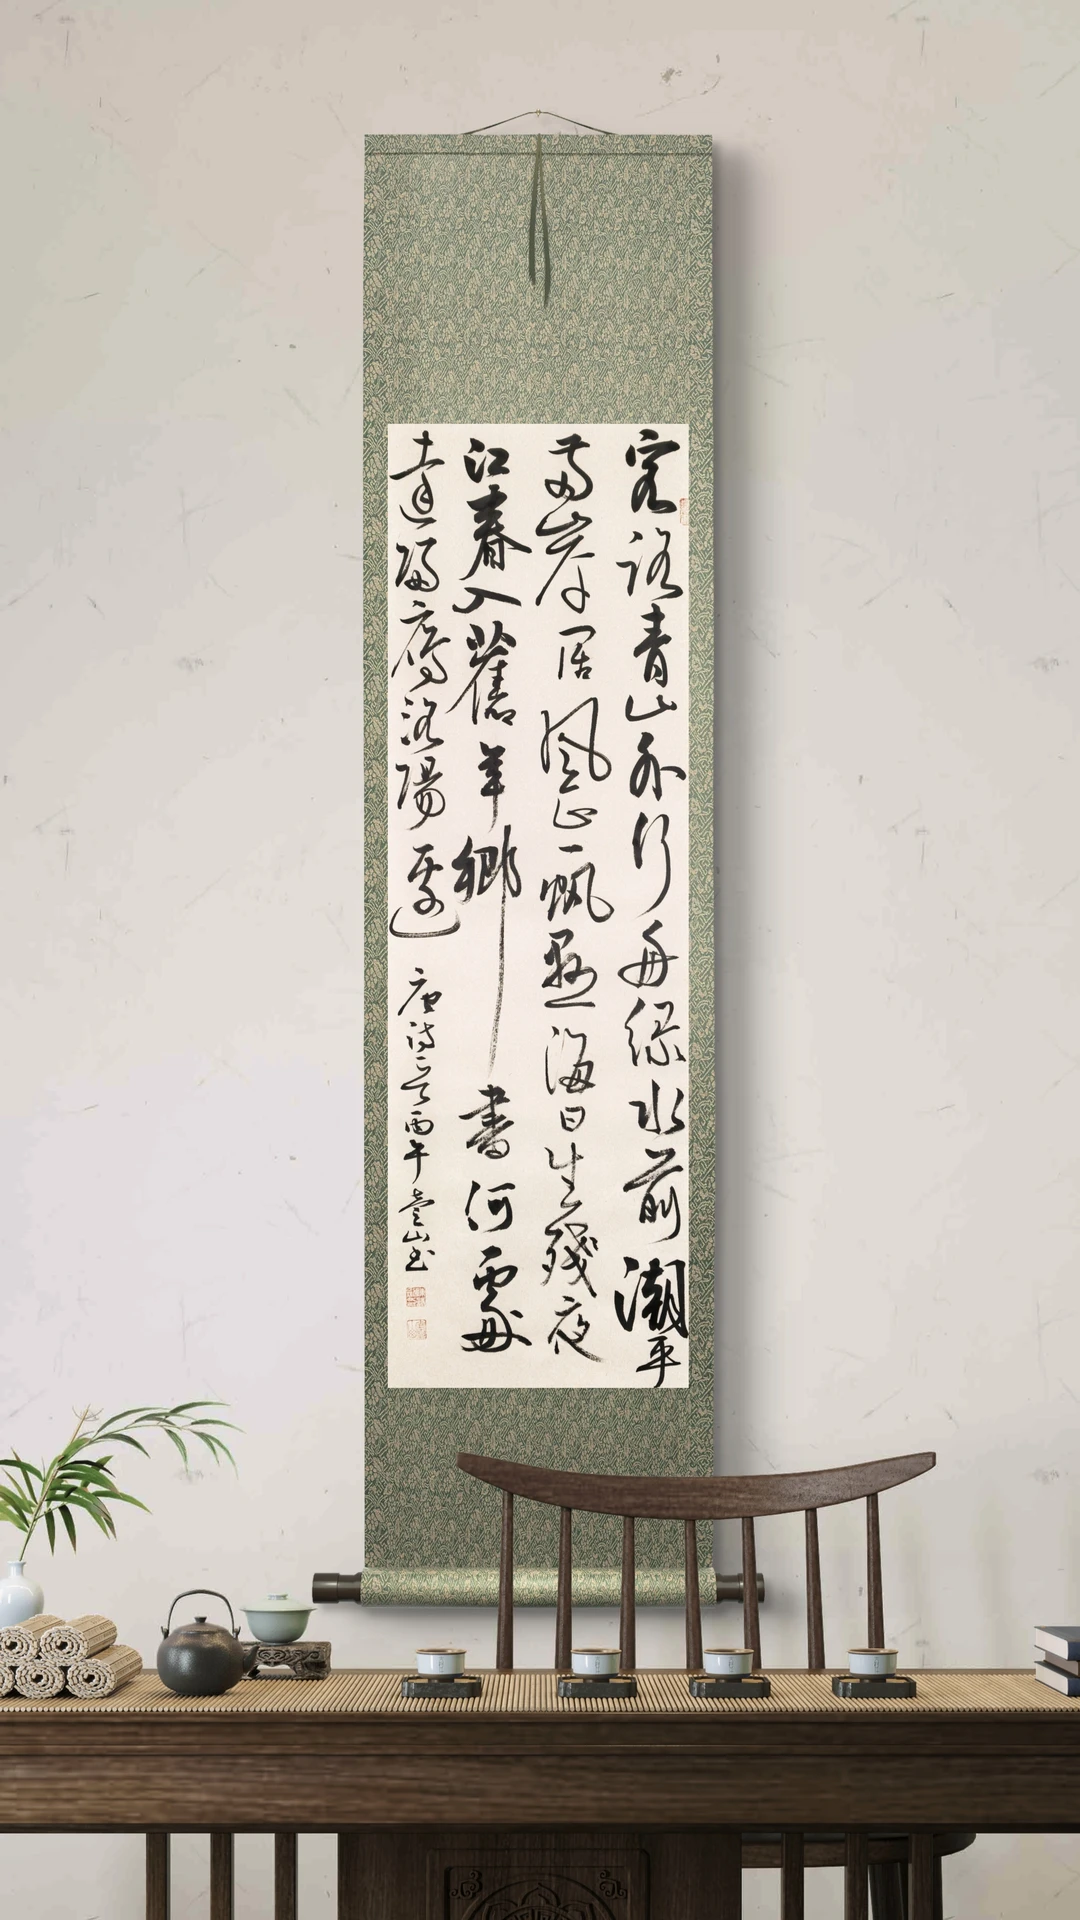 客路青山外行舟綠水前潮平
兩岸闊風正一帆懸海日生殘夜
江春入舊年鄉書何處
達歸雁洛陽邊
唐詩一首丙午山书